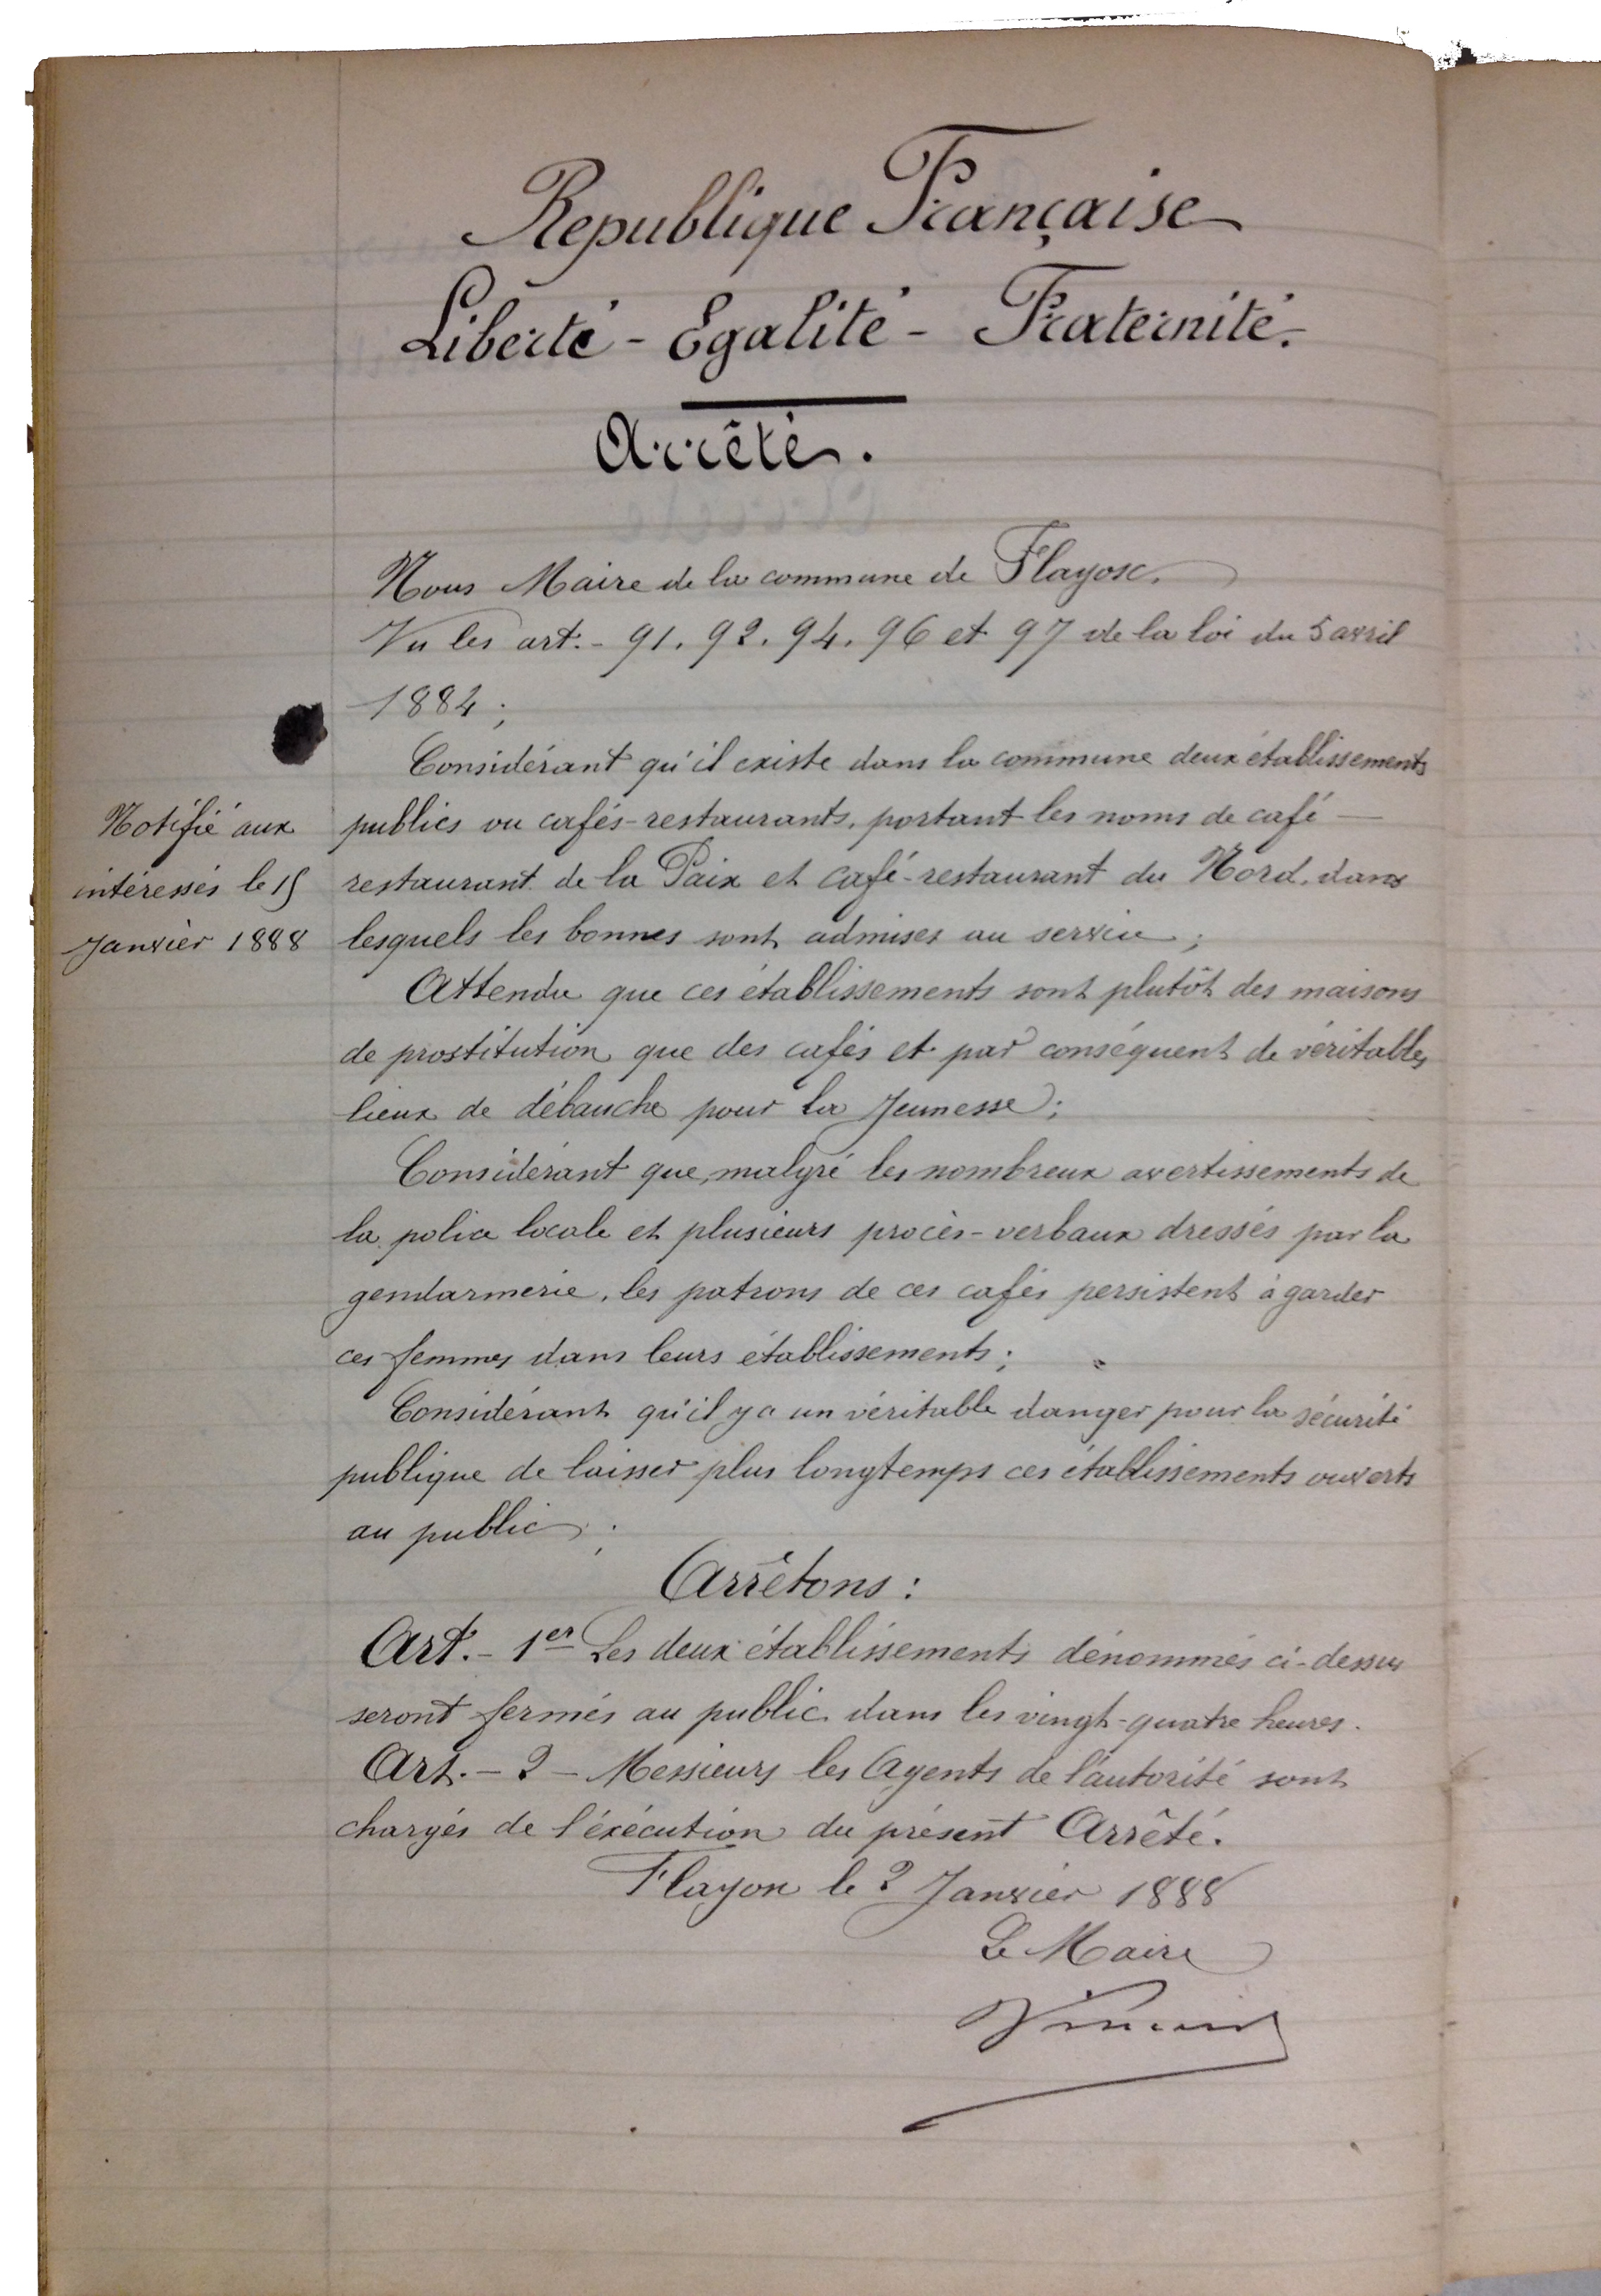 Republique Française
Liberté - Egalité - Fraternité.
Arrêté.
Nous Maire de la commune de Flayosc.
Vu les art. - 91. 92. 94. 96 et 97 de la loi du 5 avril
1884 ;
Considérant qu'il existe dans la commune deux établissements
publics ou cafés-restaurants, portant les noms de café —
restaurant de la Paix et café-restaurant du Nord, dans
lesquels les bonnes sont admises au service ;
Attendu que ces établissements sont plutôt des maisons
de prostitution que des cafés et par conséquent de véritables
lieux de débauche pour la Jeunesse ;
Considérant que, malgré les nombreux avertissements de
la police locale et plusieurs procès-verbaux dressés par la
gendarmerie, les patrons de ces cafés persistent à garder
ces femmes dans leurs établissements ;
Considérant qu'il y a un véritable danger pour la sécurité
publique de laisser plus longtemps ces établissements ouverts
au public ;
Arrêtons :
Art. - 1er Les deux établissements dénommés ci-dessus
seront fermés au public dans les vingt-quatre heures.
Art. - 2 - Messieurs les Agents de l'autorité sont
chargés de l'éxécution du présent Arrêté.
Flayosc le 2 Janvier 1888
Le Maire
Notifié aux
intéressés le 15
Janvier 1888